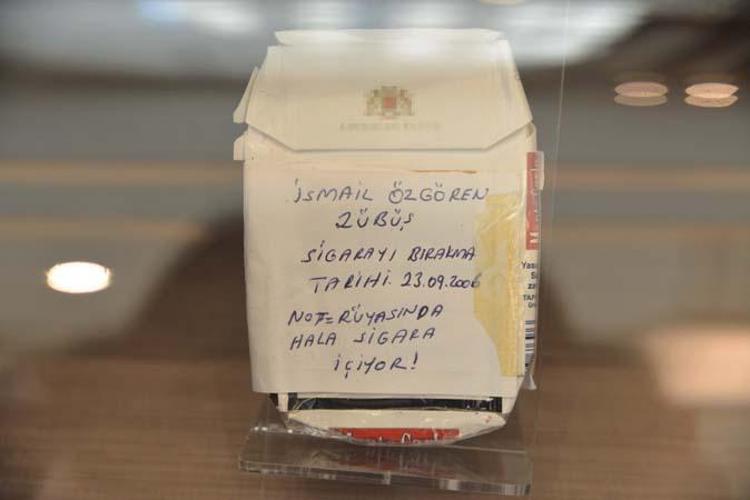 İSMAİL ÖZGÖREN
ZÜBÜŞ
SİGARAYI BIRAKMA
TARİHİ. 23.09.2006
NOT= RÜYASINDA
HALA SİGARA
İÇİYOR!